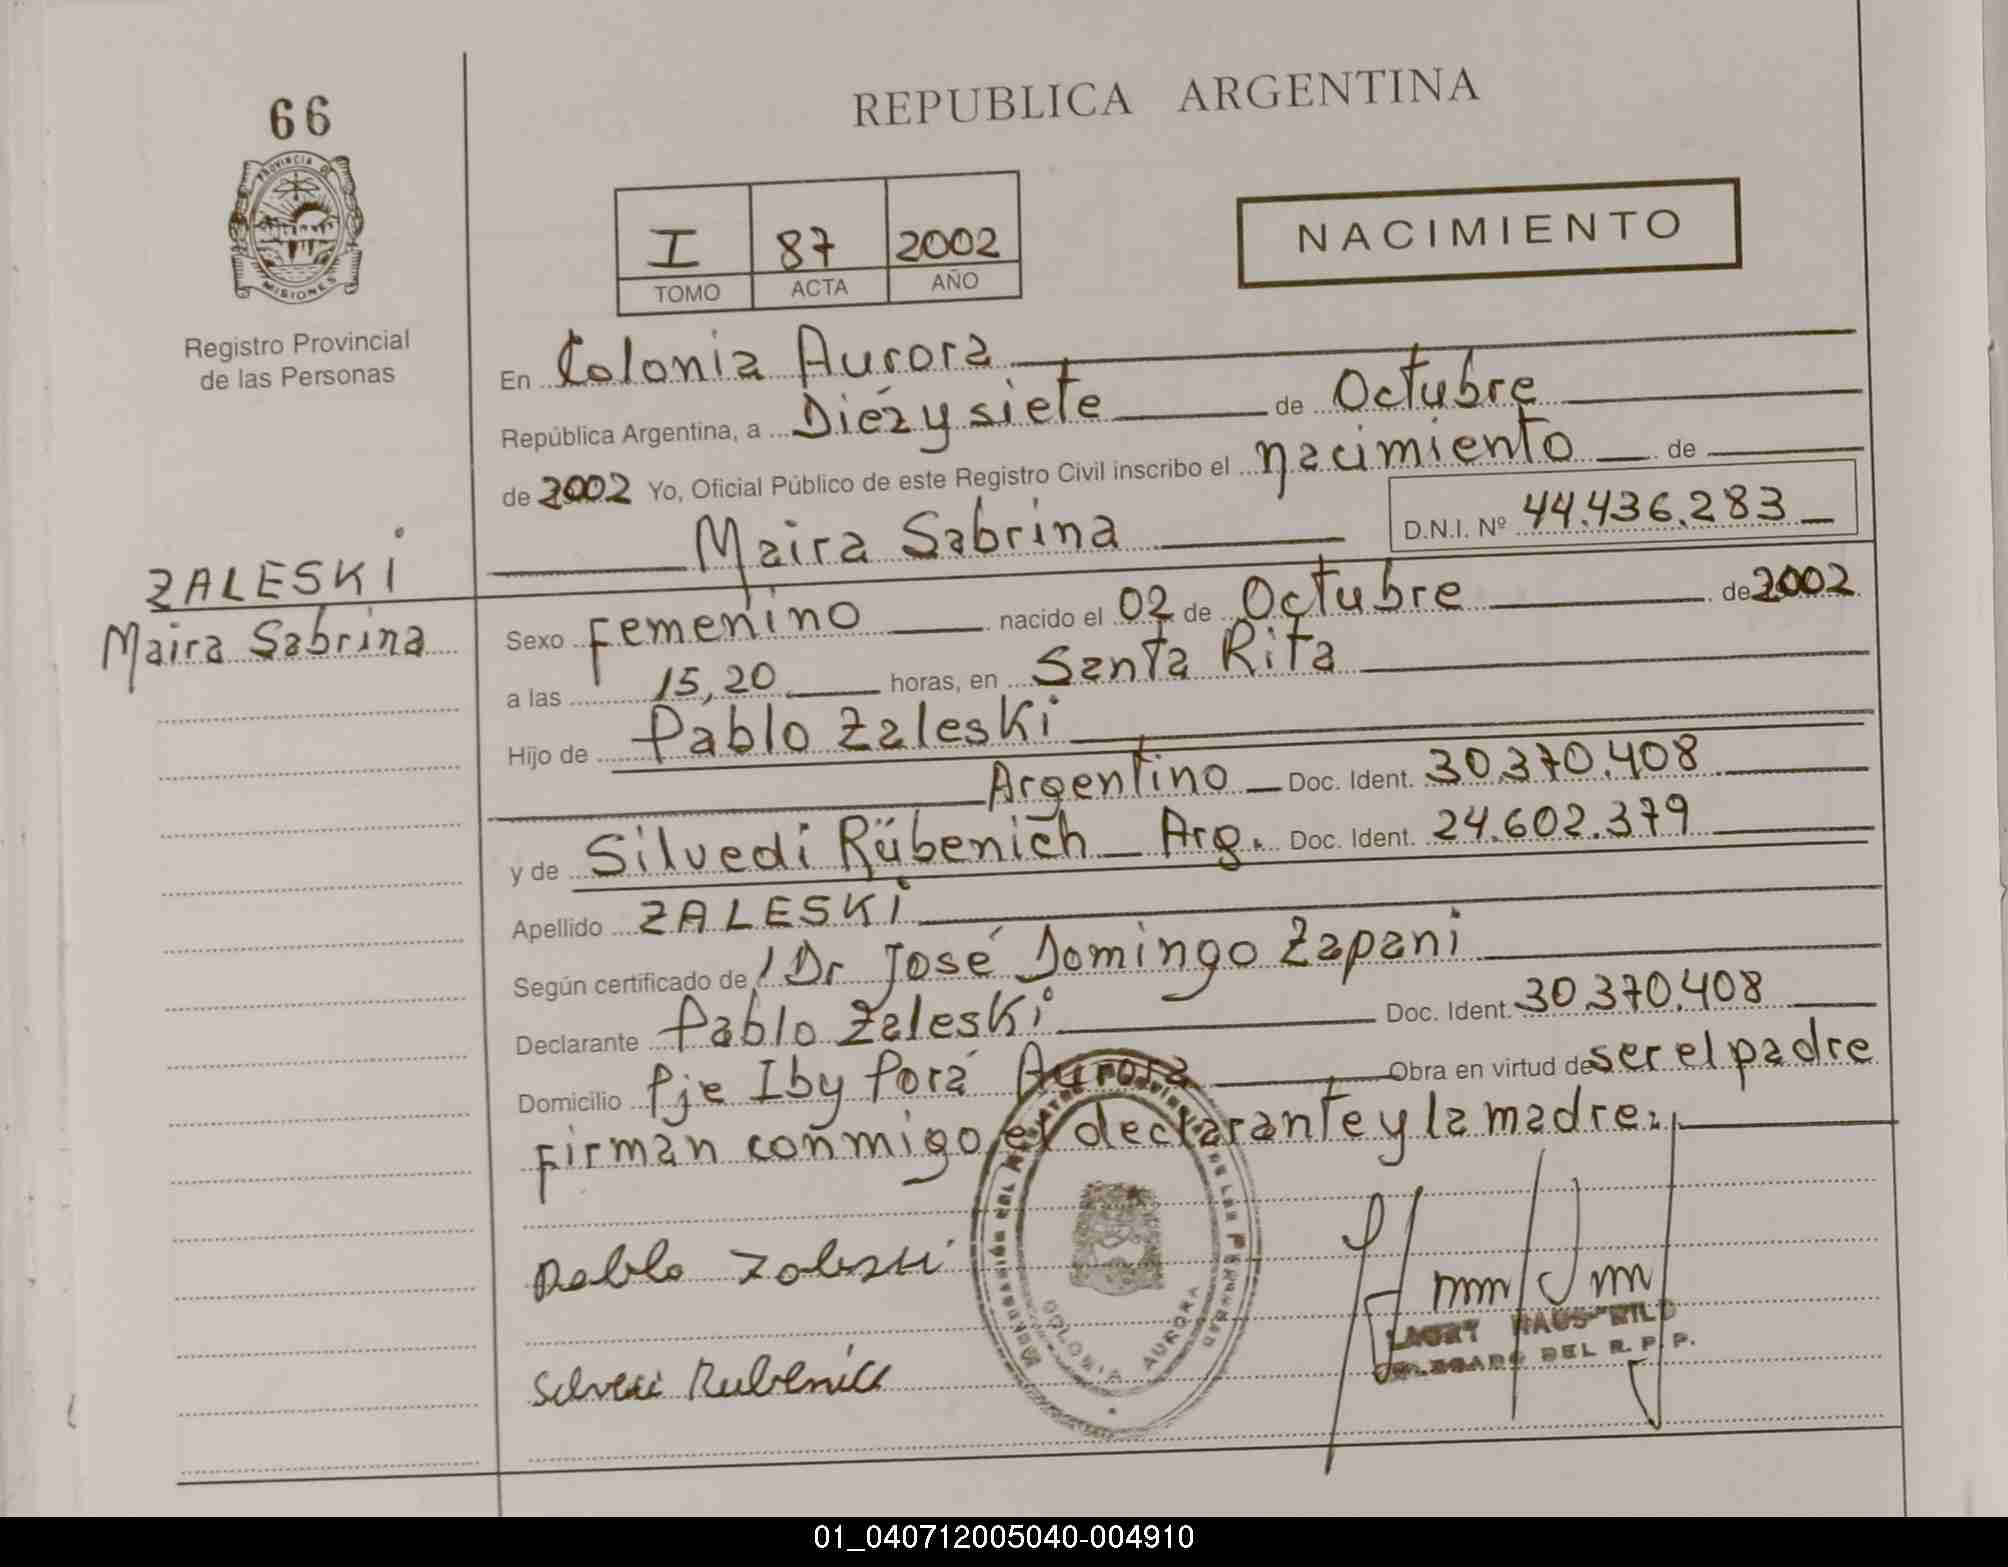 66
REPUBLICA ARGENTINA
PROVINCIA DE
MISIONES
I 87 2002
TOMO ACTA AÑO
NACIMIENTO
Registro Provincial
de las Personas
En Colonia Aurora
República Argentina, a Diéz y siete de Octubre
de 2002 Yo, Oficial Público de este Registro Civil inscribo el nacimiento de
Maira Sabrina D.N.I. Nº 44.436.283
ZALESKI
Maira Sabrina
Sexo Femenino nacido el 02 de Octubre de 2002
a las 15,20 horas, en Santa Rita
Hijo de Pablo Zaleski
Argentino Doc. Ident. 30.370.408
y de Silvedi Rübenich Arg. Doc. Ident. 24.602.379
Apellido ZALESKI
Según certificado de Dr José Domingo Zapani
Declarante Pablo Zaleski Doc. Ident. 30.370.408
Domicilio Pje Iby Porá Aurora Obra en virtud de ser el padre
Firman conmigo el declarante y la madre
Pablo Zaleski
COLONIA AURORA
DELEGADO DEL R.P.P.
01_040712005040-004910